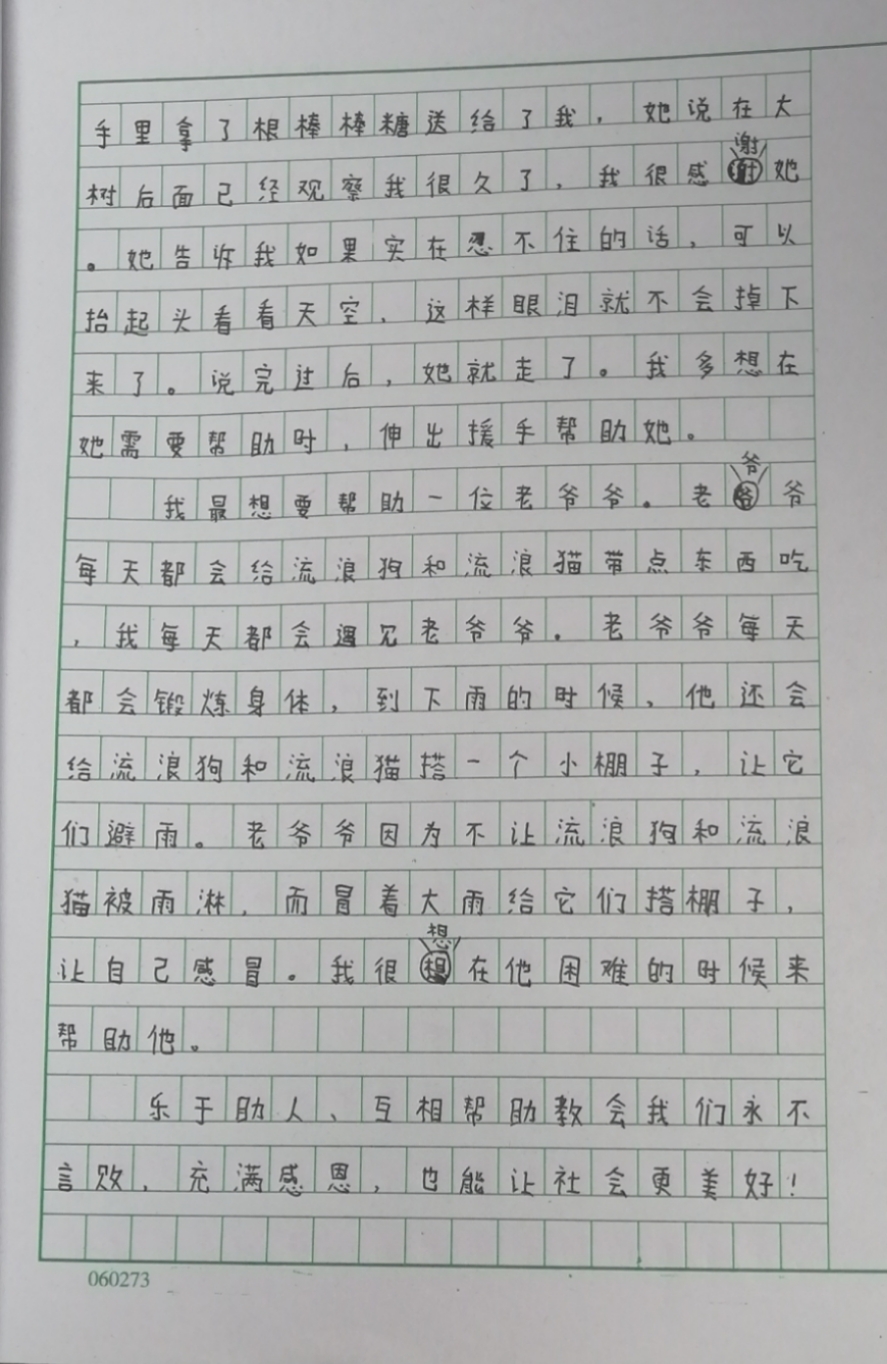 手里拿了根棒棒糖送给了我，她说在大
树后面已经观察我很久了，我很感谢她
。她告诉我如果实在忍不住的话，可以
抬起头看看天空，这样眼泪就不会掉下
来了。说完过后，她就走了。我多想在
她需要帮助时，伸出援手帮助她。
我最想要帮助一位老爷爷。老爷爷
每天都会给流浪狗和流浪猫带点东西吃
，我每天都会遇见老爷爷。老爷爷每天
都会锻炼身体，到下雨的时候，他还会
给流浪狗和流浪猫搭一个小棚子，让它
们避雨。老爷爷因为不让流浪狗和流浪
猫被雨淋，而冒着大雨给它们搭棚子，
让自己感冒。我很想在他困难的时候来
帮助他。
乐于助人、互相帮助教会我们永不
言败，充满感恩，也能让社会更美好！
060273